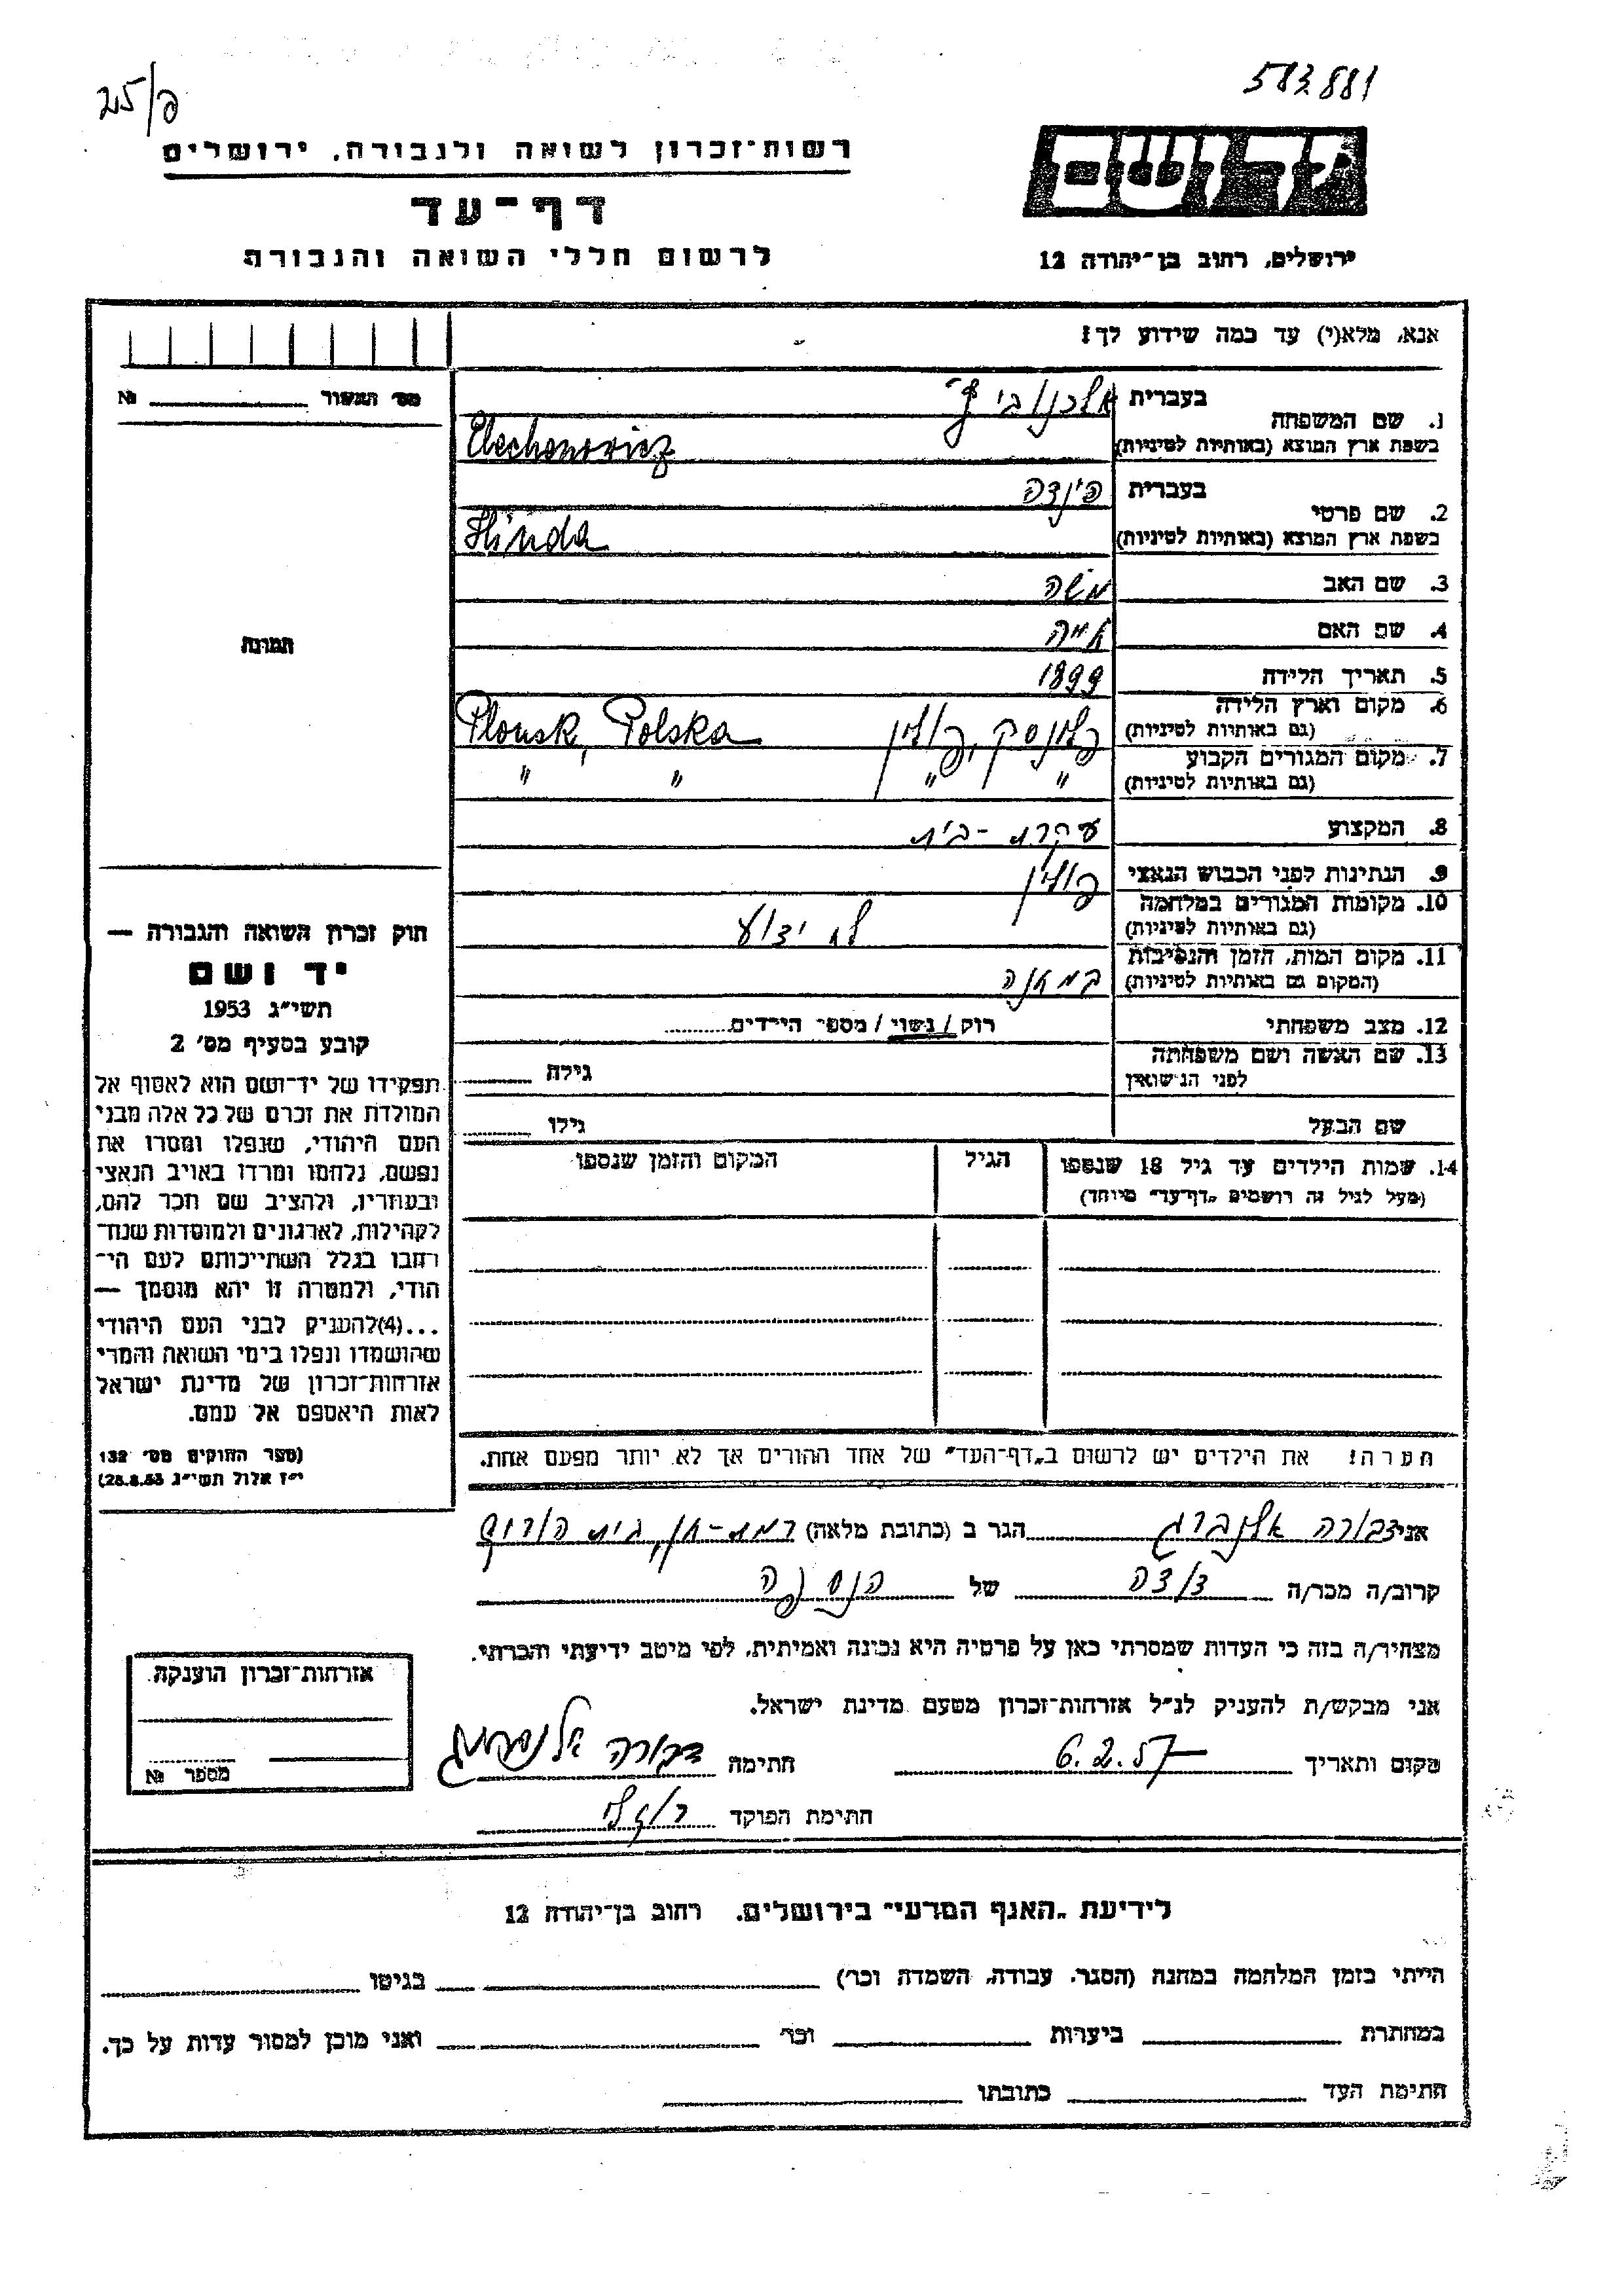 583.881
25/פ
ידושם
רשות־זכרון לשואה ולגבורה, ירושלים
דף־עד
ירושלים, רחוב בן־יהודה 12
לרשום חללי השואה והגבורה
אנא, מלא(י) עד כמה שידוע לך!
מס׳ האשור № 
1. שם המשפחה
בעברית אלכנוביץ׳
בשפת ארץ המוצא (באותיות לטיניות) Elechonowicz
2. שם פרטי
בעברית הינדה
בשפת ארץ המוצא (באותיות לטיניות) Hinda
3. שם האב משה
4. שם האם
5. תאריך הלידה 1899
6. מקום וארץ הלידה פלונסק, פולין Plonsk, Polska
(גם באותיות לטיניות)
7. מקום המגורים הקבוע " " " "
(גם באותיות לטיניות)
8. המקצוע עקרת-בית
9. הנתינות לפני הכבוש הנאצי פולין
10. מקומות המגורים במלחמה לא ידוע
(גם באותיות לטיניות)
11. מקום המות, הזמן והנסיבות
(המקום גם באותיות לטיניות)
12. מצב משפחתי רוק / נשוי / מספר הילדים
13. שם האשה ושם משפחתה גילה
לפני הנישואין
שם הבעל גילו
14. שמות הילדים עד גיל 18 שנספו הגיל המקום והזמן שנספו
(מעל לגיל זה רושמים „דף־עד״ מיוחד)
הערה! את הילדים יש לרשום ב„דף־העד״ של אחד ההורים אך לא יותר מפעם אחת.
תמונה
חוק זכרון השואה והגבורה —
יד ושם
תשי״ג 1953
קובע בסעיף מס׳ 2
תפקידו של יד־ושם הוא לאסוף אל
המולדת את זכרם של כל אלה מבני
העם היהודי, שנפלו ומסרו את
נפשם, נלחמו ומרדו באויב הנאצי
ובעוזריו, ולהציב שם וזכר להם,
לקהילות, לארגונים ולמוסדות שנח־
רבו בגלל השתייכותם לעם הי־
הודי, ולמטרה זו יהא מוסמך —
...(4)להעניק לבני העם היהודי
שהושמדו ונפלו בימי השואה והמרי
אזרחות־זכרון של מדינת ישראל
לאות היאספם אל עמם.
(ספר החוקים מס׳ 132
י״ז אלול תשי״ג 28.8.53)
אני דבורה אלנברג הגר ב (כתובת מלאה) רמת-גן,
קרוב/ה מכר/ה דודה של הנספה
מצהיר/ה בזה כי העדות שמסרתי כאן על פרטיה היא נכונה ואמיתית, לפי מיטב ידיעתי והכרתי.
אני מבקש/ת להעניק לנ״ל אזרחות־זכרון מטעם מדינת ישראל.
מקום ותאריך 6.2.57 חתימה דבורה אלנברג
חתימת הפוקד
אזרחות־זכרון הוענקה.
מספר №
לידיעת „האגף המדעי״ בירושלים, רחוב בן־יהודה 12
הייתי בזמן המלחמה במחנה (הסגר, עבודה, השמדה וכר׳) בגיטו
במחתרת ביערות וכר׳ ואני מוכן למסור עדות על כך.
חתימת העד כתובתו